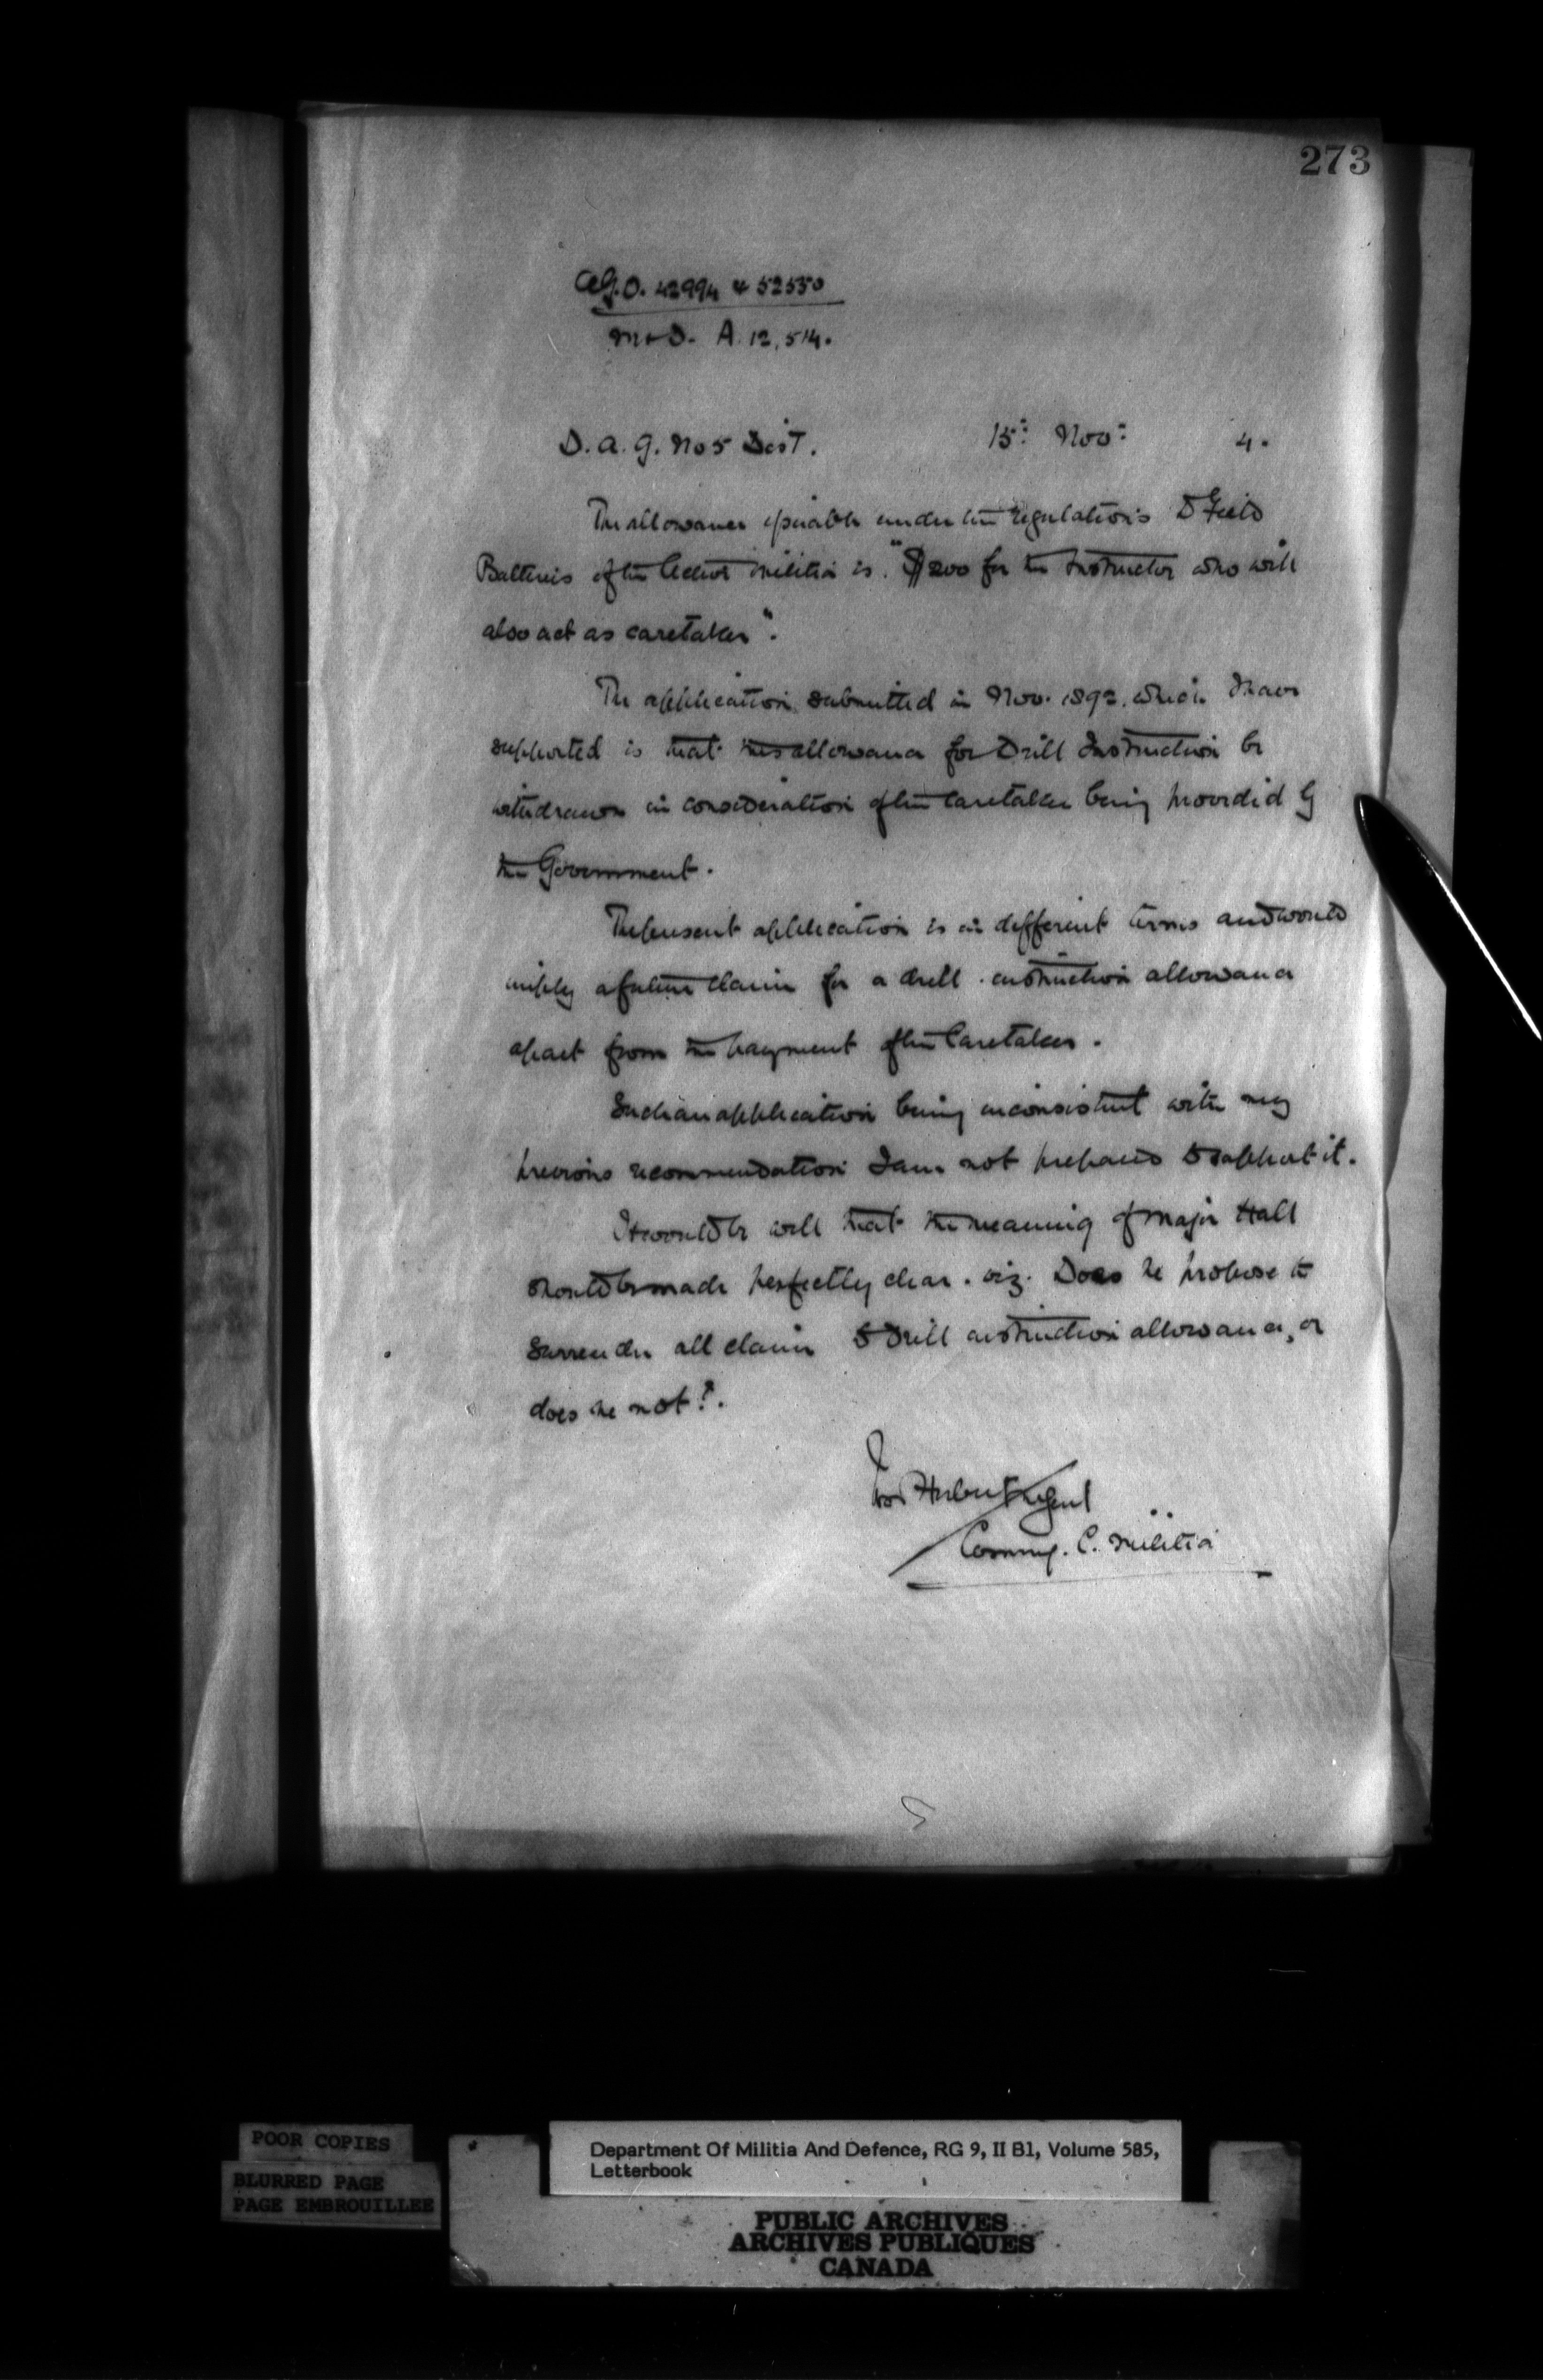 273
A.G.O. 42994 & 52530
M & D. A. 12,514.
D. A. G. No 5 Dist. 15: Nov: 4.
The allowance under the regulations to Field
Batteries of the Active Militia is "$200 for the Instructor who will
also act as caretaker".
The application submitted in Nov. 1892. which I have
supported is that this allowance for Drill Instruction be
withdrawn in consideration of the Caretaker being provided by
the Government.
The present application is in different terms and would
imply a future claim for a drill instruction allowance
apart from the payment of the Caretaker.
Such an application being inconsistent with my
previous recommendation I am not prepared to support it.
It would be well that the meaning of Major Hall
should be made perfectly clear. viz. Does he propose to
surrender all claim to Drill instruction allowance, or
does he not?.
Ivor Herbert M Genl
Commg. C. Militia
POOR COPIES
BLURRED PAGE
PAGE EMBROUILLEE
Department Of Militia And Defence, RG 9, II B1, Volume 585,
Letterbook
PUBLIC ARCHIVES
ARCHIVES PUBLIQUES
CANADA